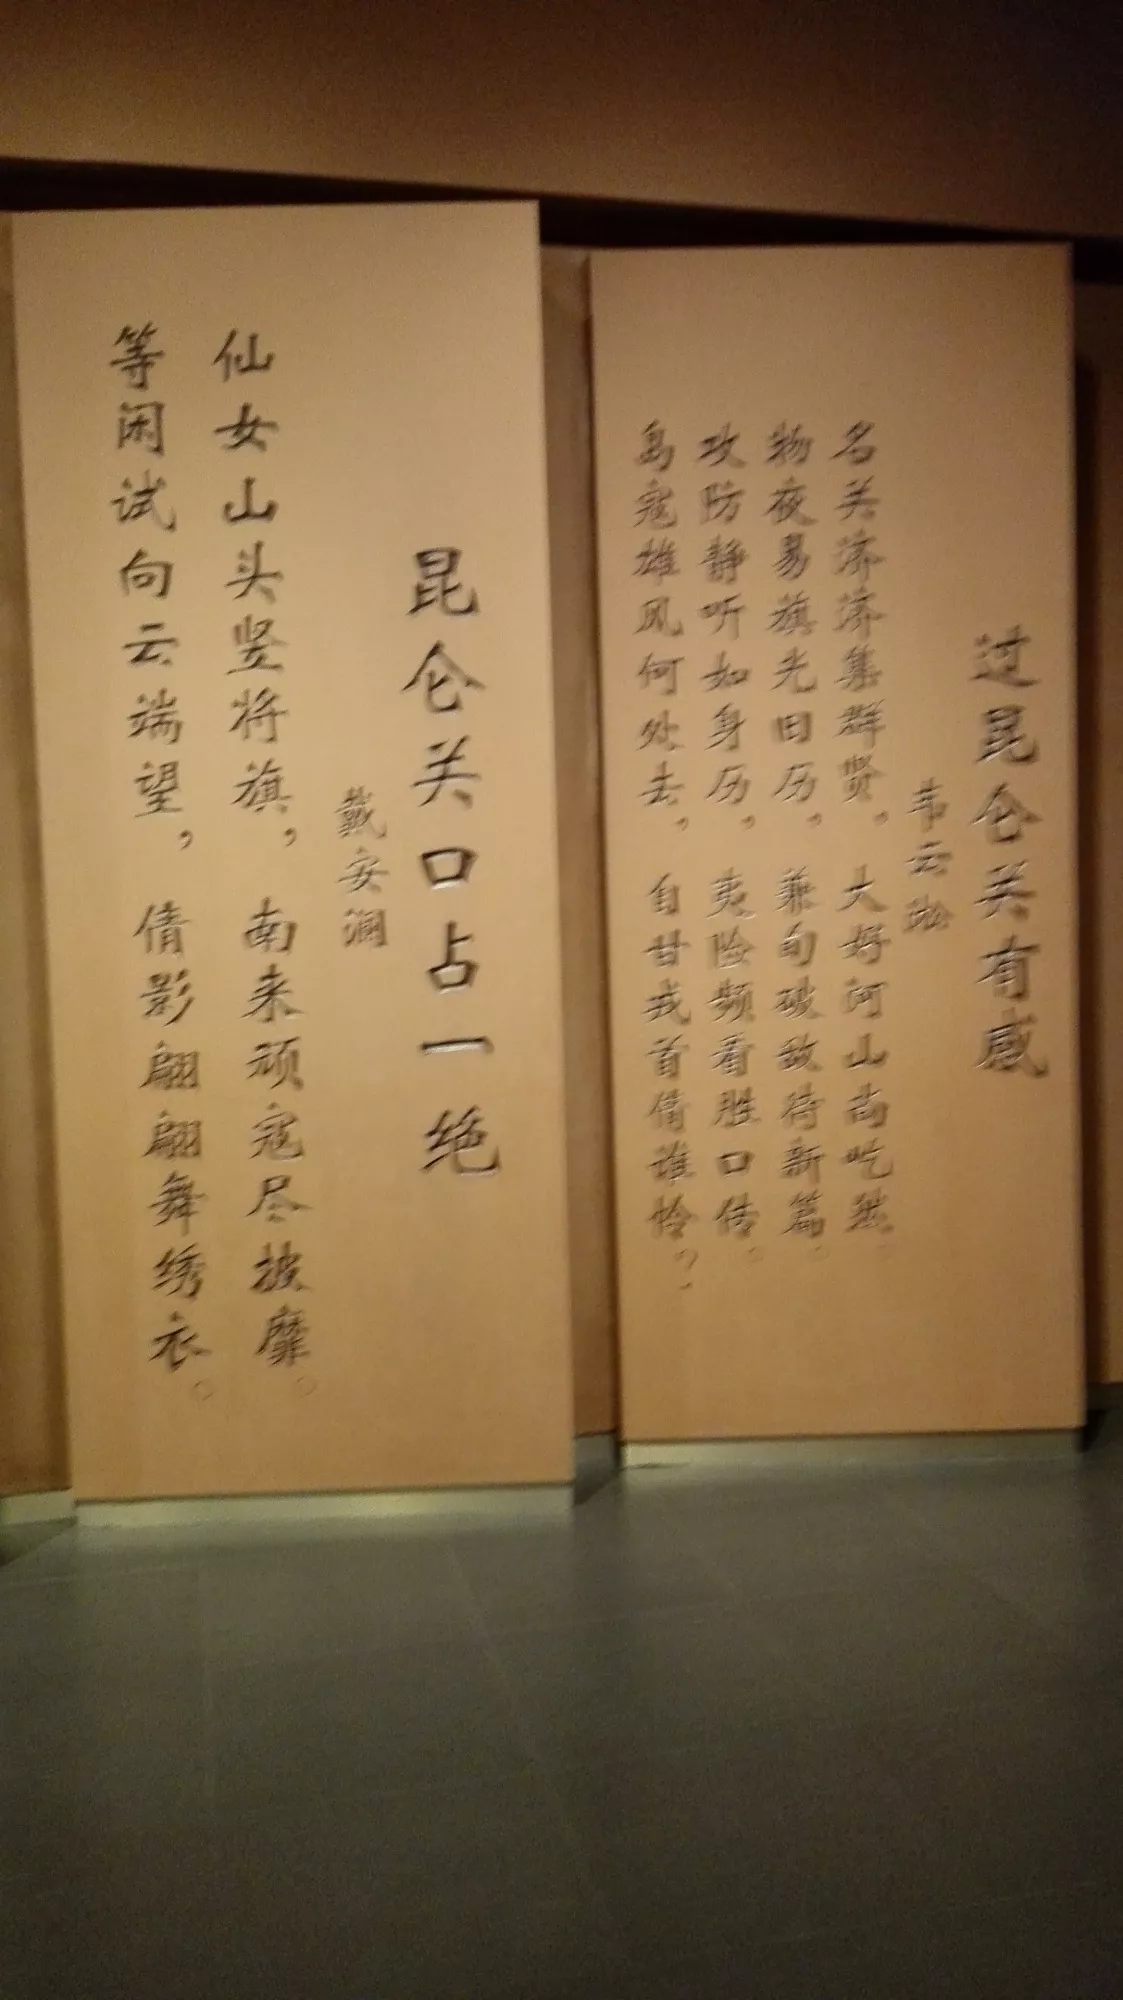 过昆仑关有感
韦云淞
名关济济集群贤，大好河山尚屹然
物夜易旗光田历，兼旬破敌待新篇。
攻防静听如身历，夷险频看胜口传。
岛寇雄风何处去，自甘戎首借谁怜？
昆仑关口占一绝
戴安澜
仙女山头竖将旗，南来顽寇尽披靡。
等闲试向云端望，倩影翩翩舞绣衣。